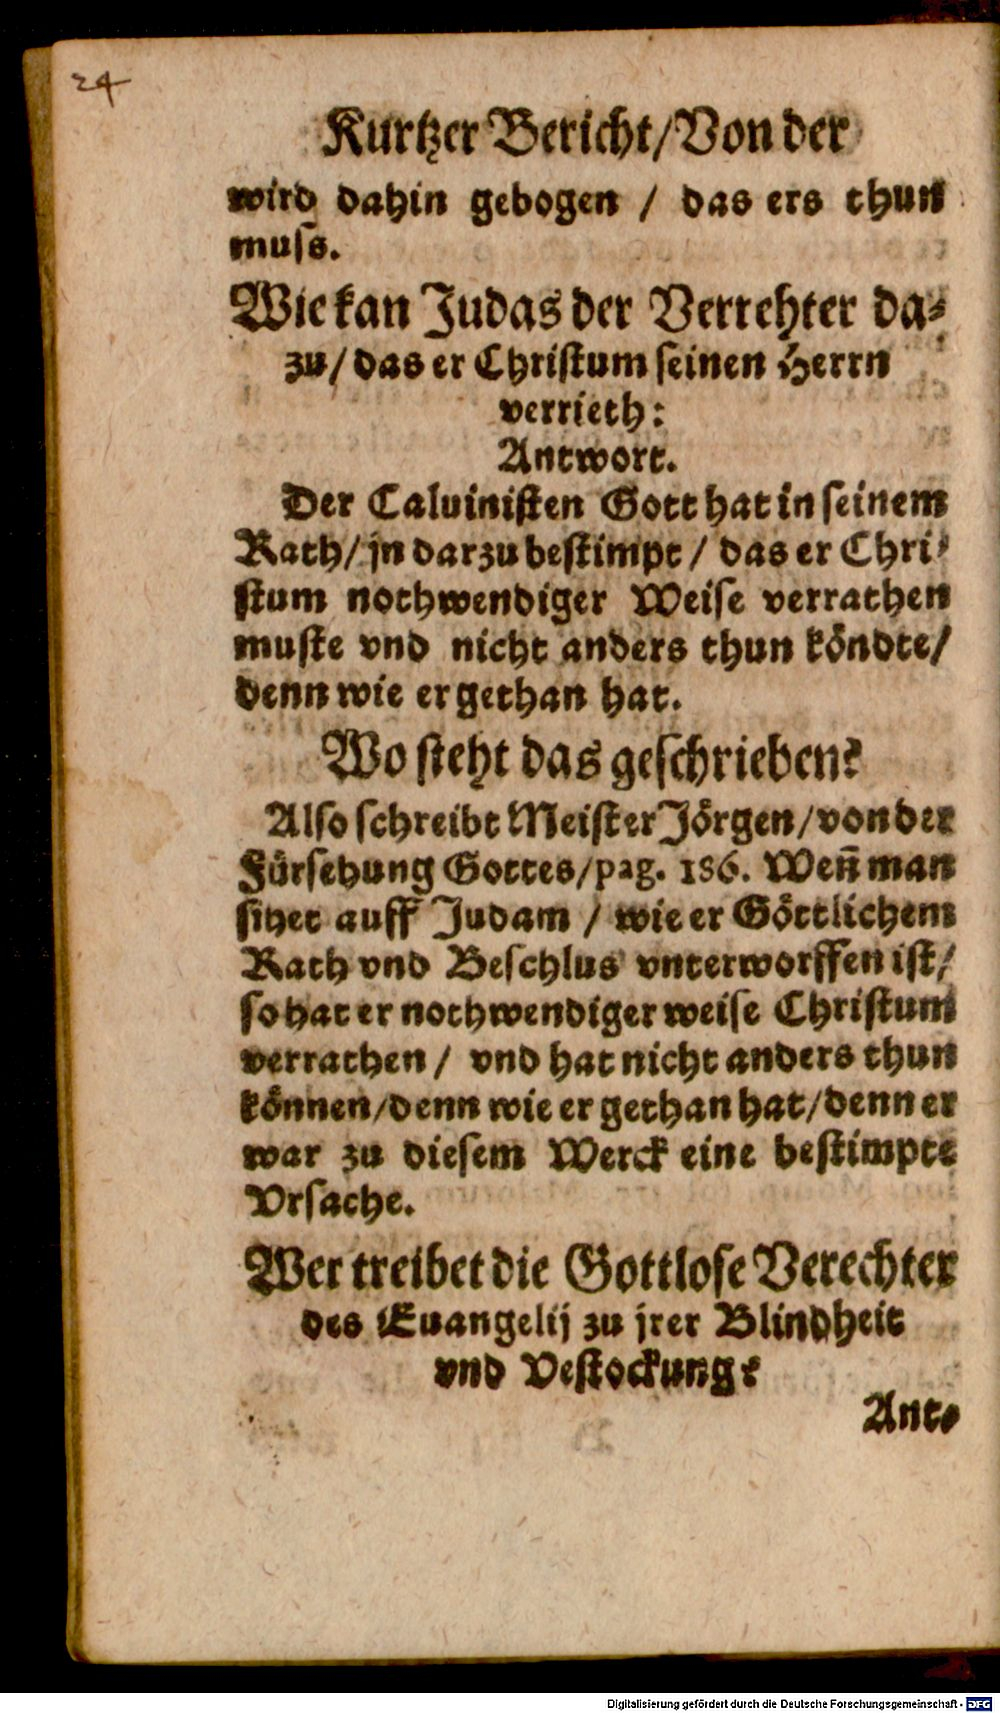 24
Kurtzer Bericht/Von der
wird dahin gebogen / das ers thun
muss.
Wie kan Judas der Verrehter da-
zu/das er Christum seinen Herrn
verrieth:
Antwort.
Der Caluinisten Gott hat in seinem
Rath/jn darzu bestimpt / das er Chri-
stum nothwendiger Weise verrathen
muste vnd nicht anders thun köndte/
denn wie er gethan hat.
Wo steht das geschrieben?
Also schreibt Meister Jörgen/von der
Fürsehung Gottes/pag. 186. Weñ man
sihet auff Judam / wie er Göttlichem
Rath vnd Beschlus vnterworffen ist/
so hat er nothwendiger weise Christum
verrathen / vnd hat nicht anders thun
können/denn wie er gethan hat/denn er
war zu diesem Werck eine bestimpte
Vrsache.
Wer treibet die Gottlose Verechter
des Euangelij zu jrer Blindheit
vnd Vestockung?
Ant-
Digitalisierung gefördert durch die Deutsche Forschungsgemeinschaft - DFG